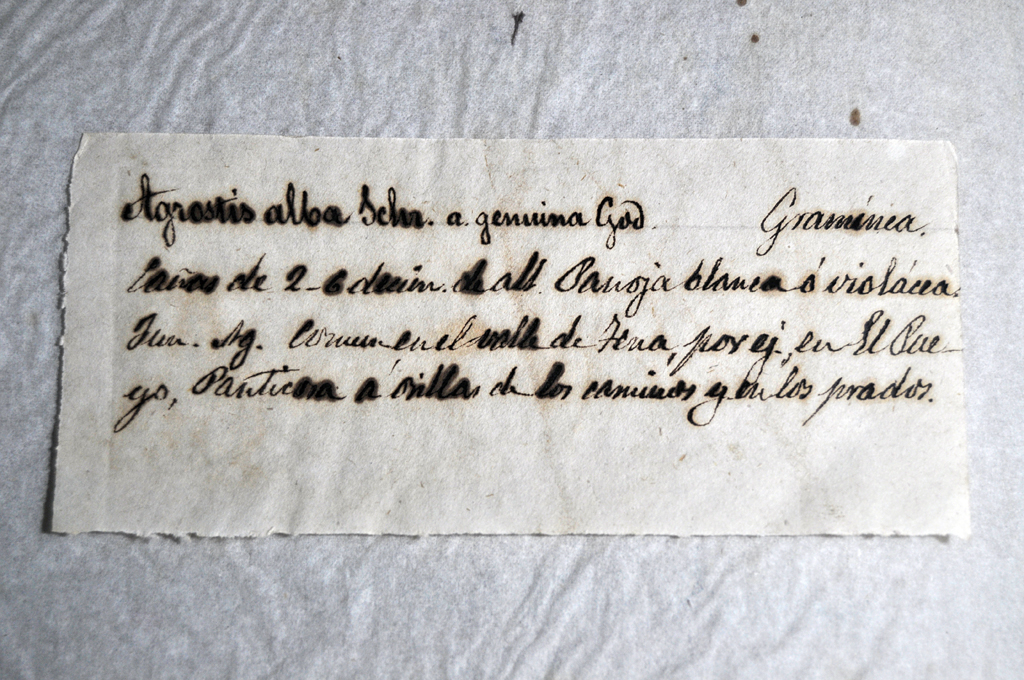 Agrostis alba Schr. a. genuina God. Gramínea.
Cañas de 2-6 decim. de alt. Panoja blanca ó violácea.
Jun. Ag. Comun en el valle de Tena, por ej., en El Pue-
yo, Panticosa á orillas de los caminos y en los prados.